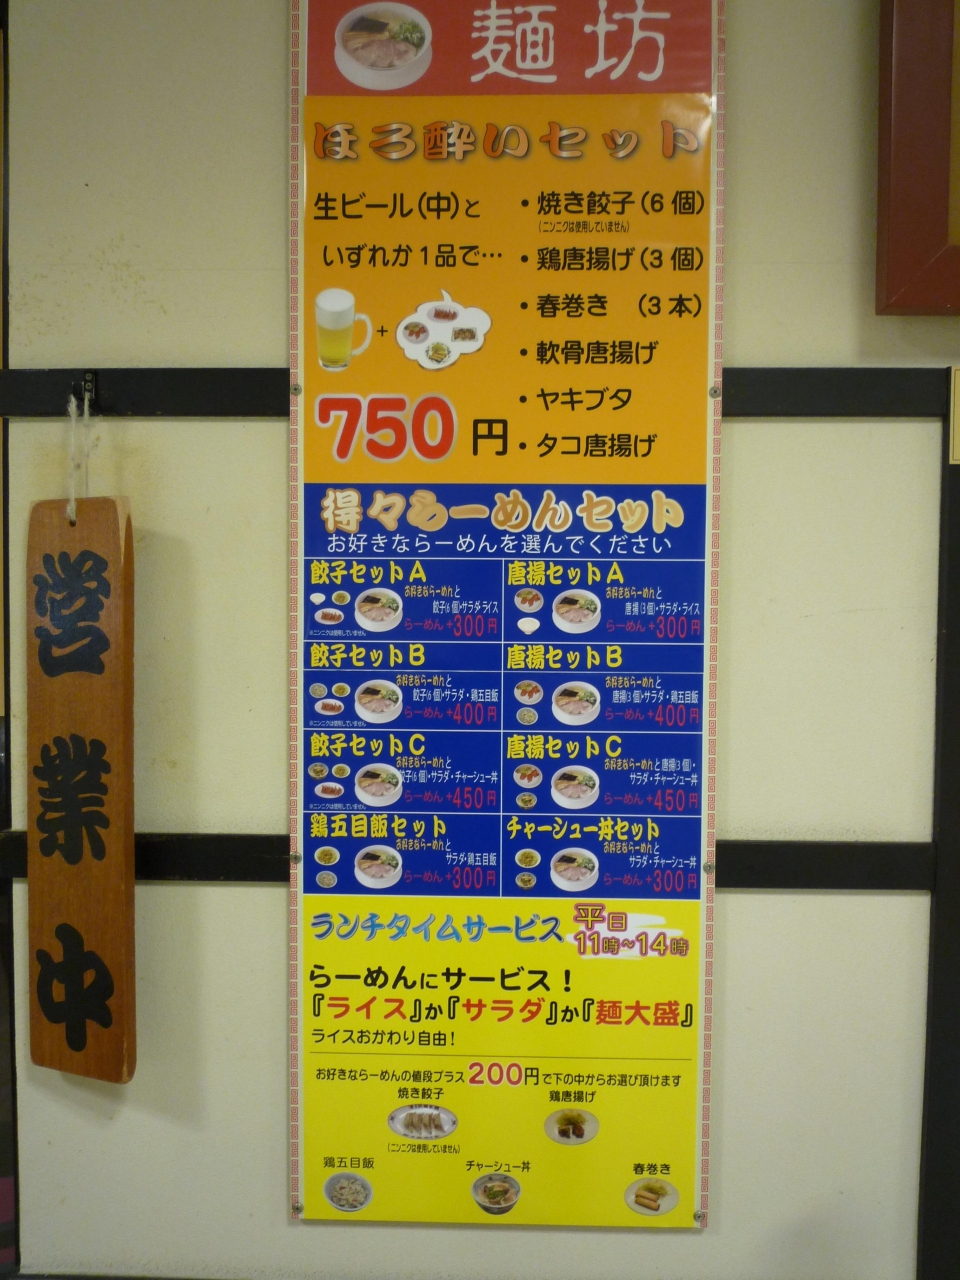 麺坊
ほろ酔いセット
生ビール(中)と
いずれか1品で…
+
750円
・焼き餃子(6個)
(ニンニクは使用していません)
・鶏唐揚げ(3個)
・春巻き (3本)
・軟骨唐揚げ
・ヤキブタ
・タコ唐揚げ
得々らーめんセット
お好きならーめんを選んでください
餃子セットA
お好きならーめんと
餃子(6個)・サラダ・ライス
らーめん+300円
※ニンニクは使用していません
唐揚セットA
お好きならーめんと
唐揚(3個)・サラダ・ライス
らーめん+300円
餃子セットB
お好きならーめんと
餃子(6個)・サラダ・鶏五目飯
らーめん+400円
※ニンニクは使用していません
唐揚セットB
お好きならーめんと
唐揚(3個)・サラダ・鶏五目飯
らーめん+400円
餃子セットC
お好きならーめんと
餃子(6個)・サラダ・チャーシュー丼
らーめん+450円
※ニンニクは使用していません
唐揚セットC
お好きならーめんと唐揚(3個)・
サラダ・チャーシュー丼
らーめん+450円
鶏五目飯セット
お好きならーめんと
サラダ・鶏五目飯
らーめん+300円
チャーシュー丼セット
お好きならーめんと
サラダ・チャーシュー丼
らーめん+300円
ランチタイムサービス
平日
11時~14時
らーめんにサービス!
『ライス』か『サラダ』か『麺大盛』
ライスおかわり自由!
お好きならーめんの値段プラス200円で下の中からお選び頂けます
焼き餃子
鶏唐揚げ
(ニンニクは使用していません)
鶏五目飯
チャーシュー丼
春巻き
営業中